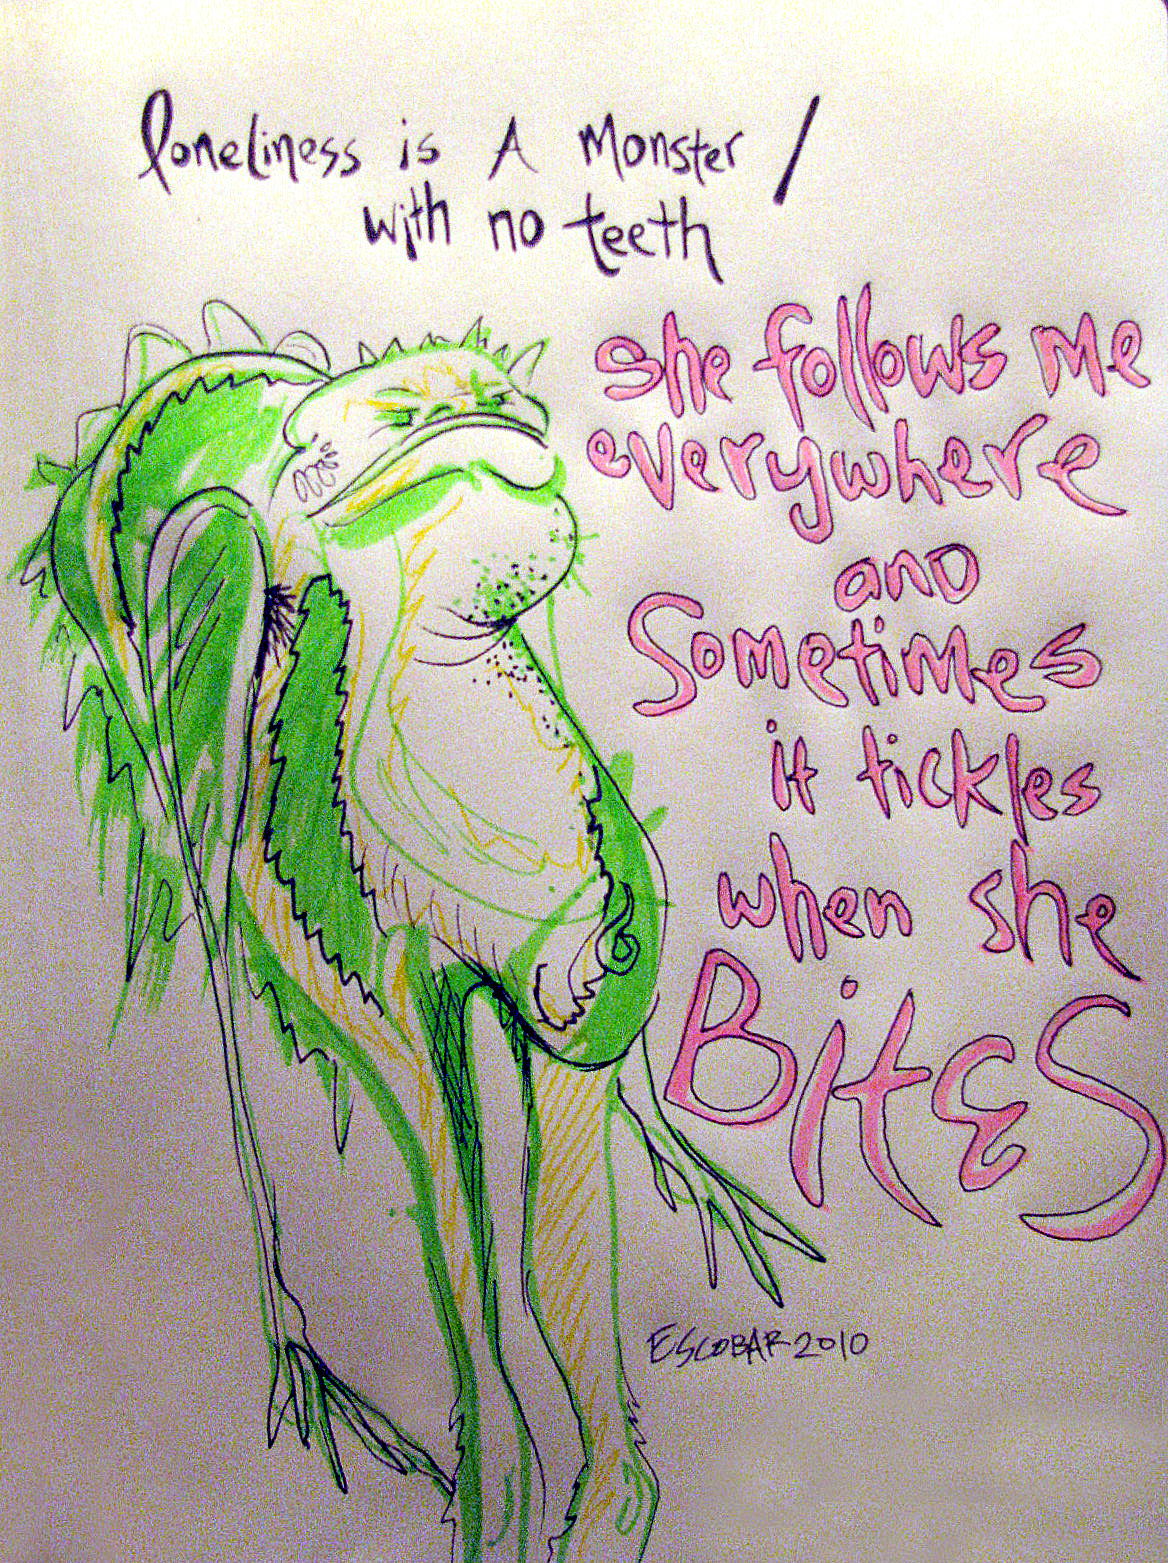 loneliness is A Monster /
with no teeth
She follows Me
everywhere
and
Sometimes
it tickles
when she
BitEs
ESCOBAR 2010